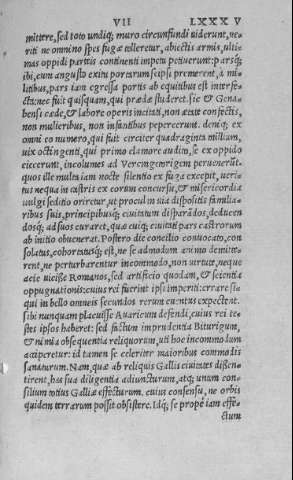 VII LXXXV
mittere, sed toto undiq; muro circunfundi uiderunt, ne=
riti ne omnino spes fugæ tolleretur, abiectis armis, ulti=
mas oppidi partis continenti impetu petiuerunt: parsq;
ibi, cum angusto exitu portarum se ipsi premerent, à mi=
litibus, pars iam egressa portis ab equitibus est interfe=
cta: nec fuit quisquam, qui prædæ studeret. sic & Gena=
bensi cæde, & labore operis incitati, non ætate confectis,
non mulieribus, non infantibus pepercerunt. deniq; ex
omni eo numero, qui fuit circiter quadraginta millium,
uix octingenti, qui primo clamore audito, se ex oppido
eiecerunt, incolumes ad Vercingetorigem peruenerũt.
quos ille multa iam nocte silentio ex fuga excepit, ueri=
tus ne qua in castris ex eorum concursu, & misericordia
uulgi seditio oriretur, ut procul in uia dispositis familia=
ribus suis, principibusq; ciuitatum disparãdos, deducen
dosq; ad suos curaret, quæ cuiq; ciuitati pars castrorum
ab initio obuenerat. Postero die concilio conuocato, con
solatus, cohortatusq; est, ne se admodum animo demitte=
rent, ne perturbarentur incommodo, non uirtute, neque
acie uicisse Romanos, sed artificio quodam, & scientia
oppugnationis: cuius rei fuerint ipsi imperiti: errare si
qui in bello omneis secundos rerum euentus expectent.
sibi nunquam placuisse Auaricum defendi, cuius rei te=
stes ipsos haberet: sed factum imprudentia Biturigum,
& nimia obsequentia reliquorum, uti hoc incommodum
acciperetur: id tamen se celeriter maioribus commodis
sanaturum. Nam, quæ ab reliquis Gallis ciuitates dissen=
tirent, has sua diligentia adiuncturum, atq; unum con=
silium totius Galliæ effecturum, cuius consensu, ne orbis
quidem terrarum possit obsistere. Idq; se propè iam effe=
ctum